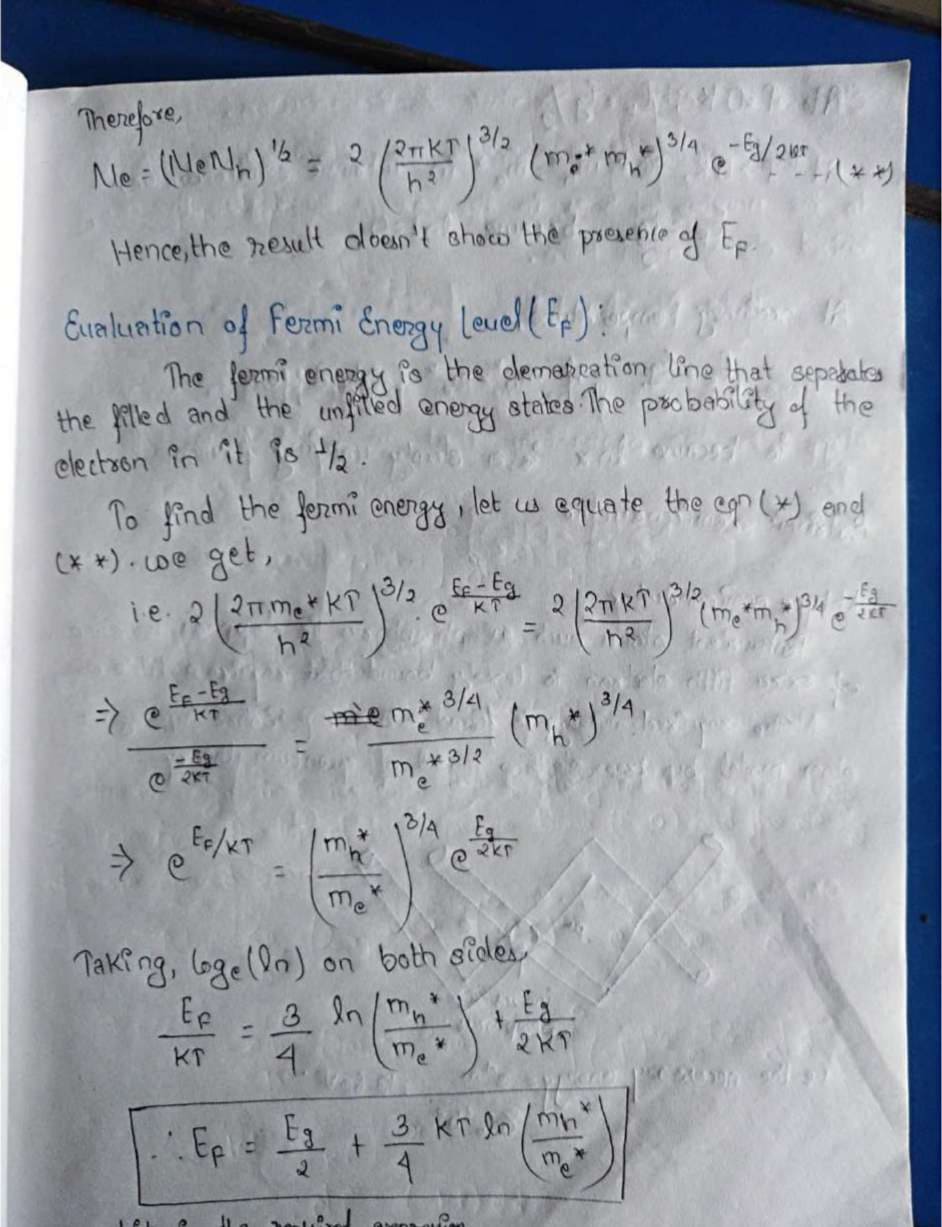 Therefore,
Ne = (NeNh)^1/2 = 2 (2πKT/h²)^3/2 (me* mh*)^3/4 e^-Eg/2KT - - - (**)
Hence, the result doesn't show the presence of EF.
Evaluation of Fermi Energy Level (EF):
The fermi energy is the demarcation line that separates
the filled and the unfilled energy states. The probability of the
electron in it is 1/2.
To find the fermi energy, let us equate the eqn (*) and
(**). we get,
i.e. 2 (2π me* KT/h²)^3/2 . e^(EF-Eg/KT) = 2 (2πKT/h²)^3/2 (me* mh*)^3/4 e^(-Eg/2KT)
⇒ e^(EF-Eg/KT) / e^(-Eg/2KT) = me*^3/4 / me*^3/2 (mh*)^3/4
⇒ e^EF/KT = (mh*/me*)^3/4 e^(Eg/2KT)
Taking, loge (ln) on both sides,
EF/KT = 3/4 ln (mh*/me*) + Eg/2KT
∴ EF = Eg/2 + 3/4 KT ln (mh*/me*)